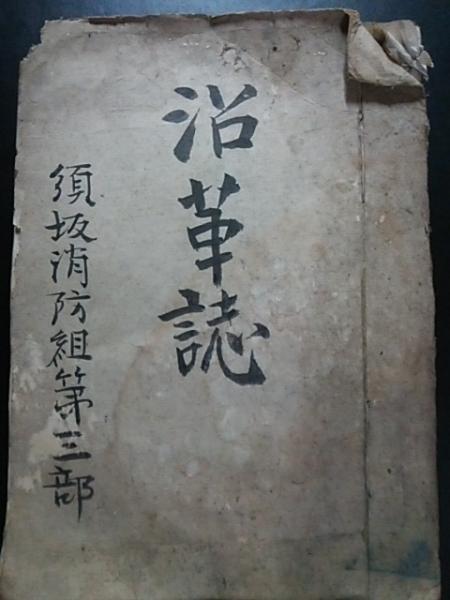 沿革誌
須坂消防組第三部